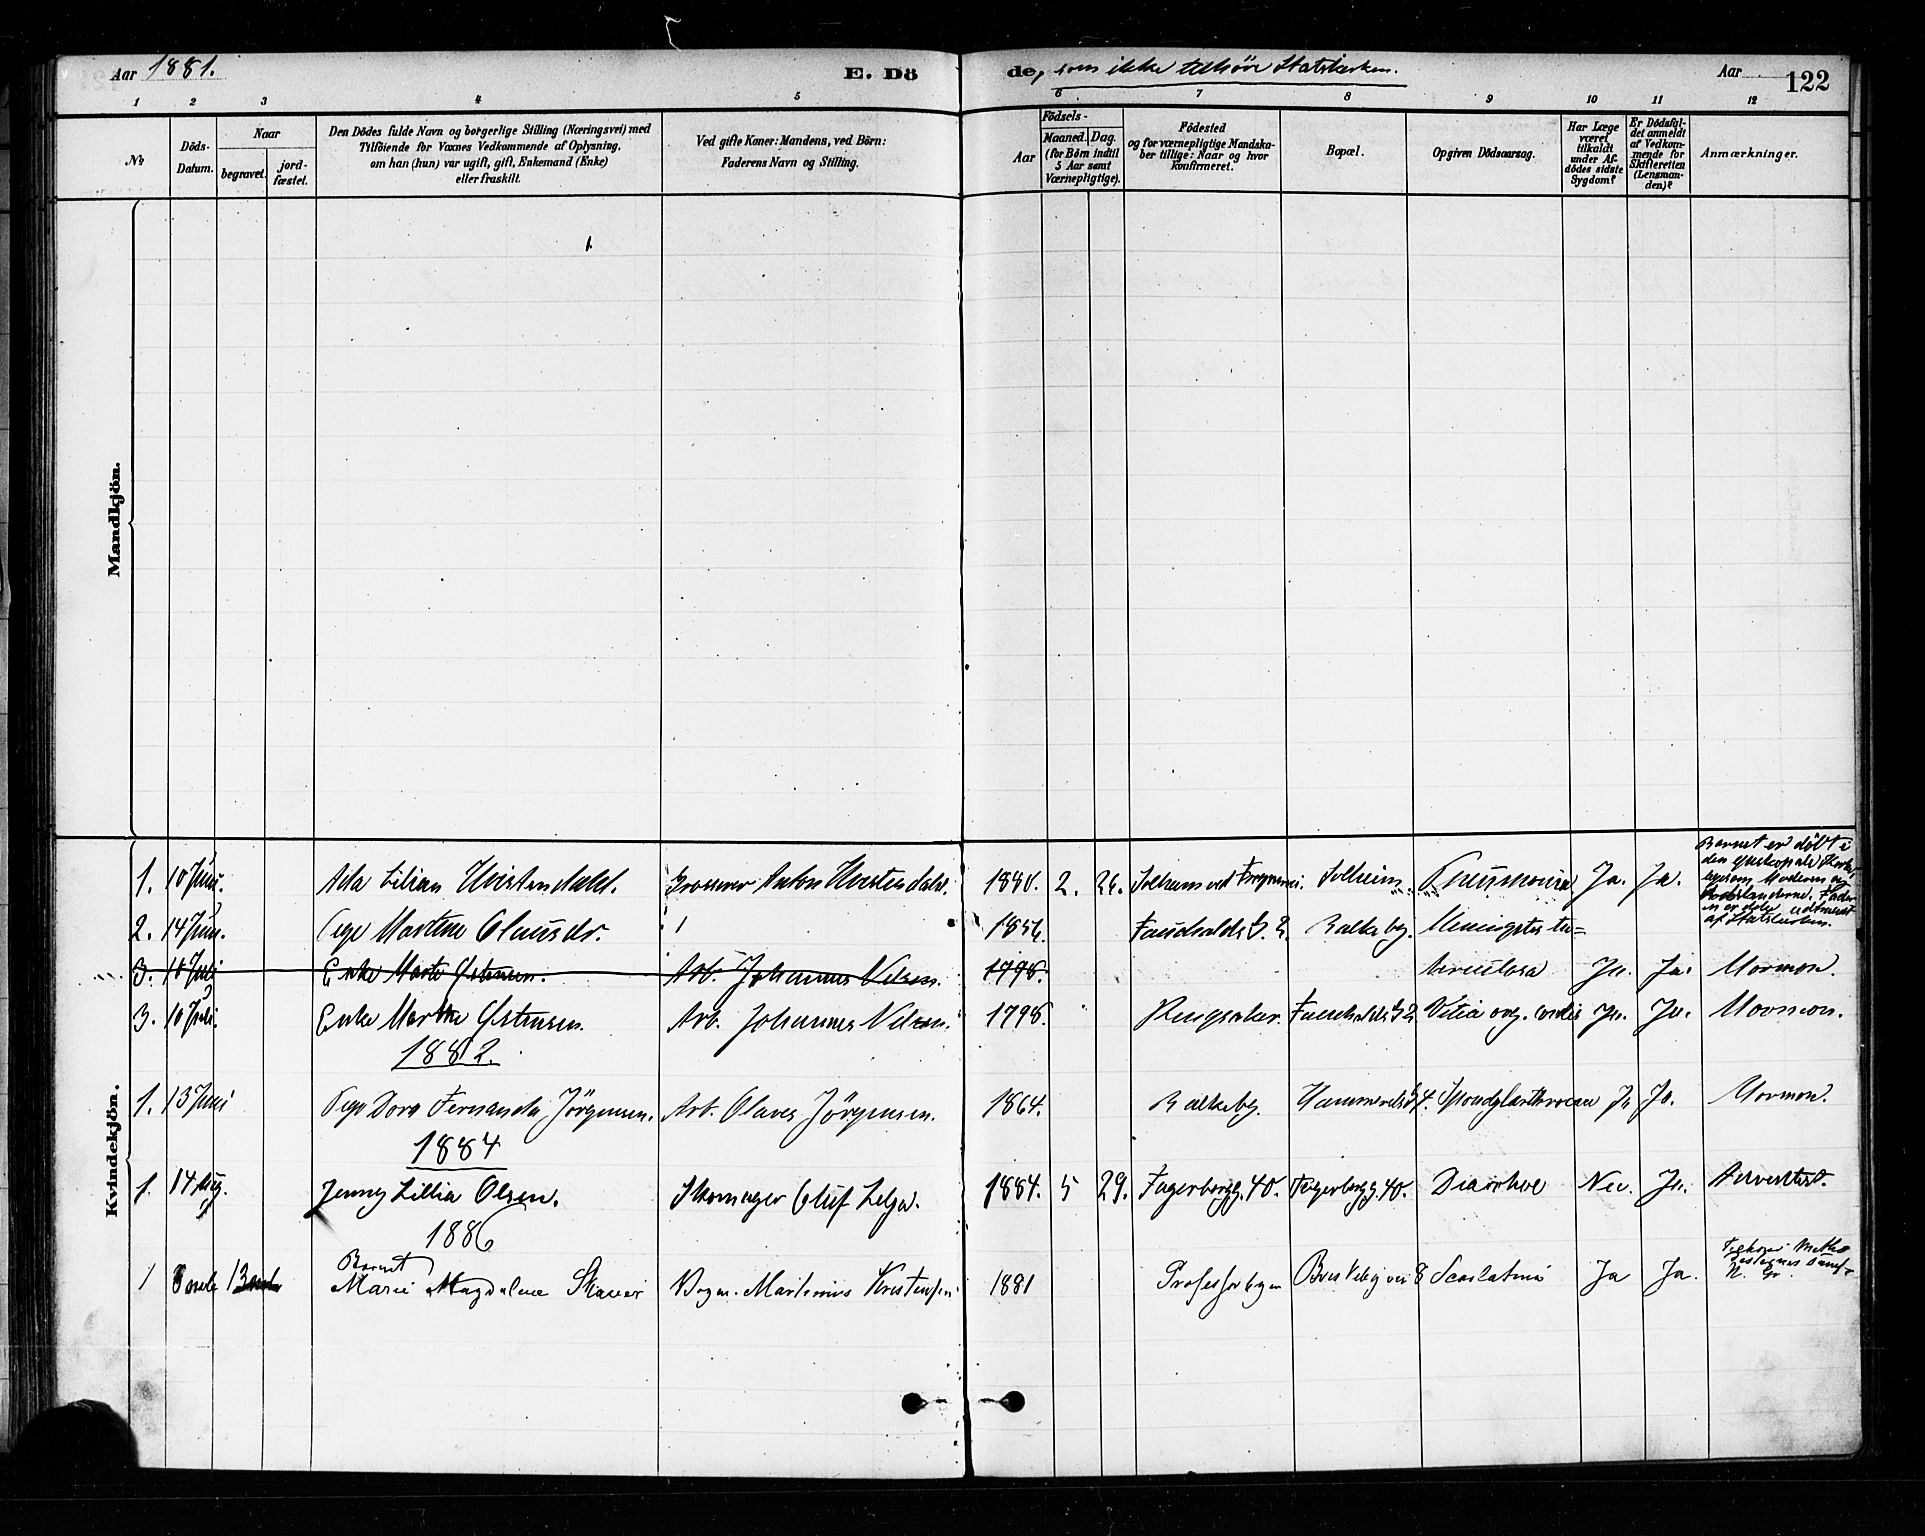 Aar 1881.
E. Dö
de, som ikke tilhöre Statskirken.
Aar
122
1 2 3 4 5 6 7 8 9 10 11 12
No
Döds-
Datum.
Naar
begravet.
jord-
fæstet.
Den Dödes fulde Navn og borgerlige Stilling (Næringsvei) med
Tilföiende for Voxnes Vedkommende af Oplysning,
om han (hun) var ugift, gift, Enkemand (Enke)
eller fraskilt.
Ved gifte Koner: Mandens, ved Börn:
Faderens Navn og Stilling.
Födsels-
Aar
Maaned. Dag.
(for Börn indtil
5 Aar samt
Værnepligtige).
Födested
og for værnepligtige Mandska-
ber tillige: Naar og hvor
Konfirmeret.
Bopæl.
Opgiven Dödsaarsag.
Har Læge
været
tilkaldt
under Af-
dödes sidste
Sygdom?
Er Dödsfal-
det anmeldt
af Vedkom-
mende for
Skifteretten
(Lensman-
den)?
Anmærkninger.
Mandkjön.
Kvindekjön.
1. 10 Juni. Ada Lilian Hvistendahl. Grosserer Anton Hvistendahl. 1880. 2. 26. Solheim ved Frognerv. Solheim Pneumonia Ja. Ja.
Barnet er döbt i
den episkopale Kirke,
ligesom Moderen
af Statskirken.
2. 14 Juni. Pige Martine Olausdr. 1856. Faudhalds G. 2. Balkeby. Meningitis tu=
3. 10 Juli Enke Marte Östensen. Arb. Johannes Nilsen. 1798. berculosa Ja. Ja. Mormon.
3. 10 Juli. Enke Marthe Östensen. Arb. Johannes Nilsen. 1798. Ringsaker. Faudhalds G 2 Vitia org. cordis Ja. Ja. Mormon.
1882.
1. 13 Juni Pige Dora Fernanda Jörgensen. Arb. Olaves Jörgensen. 1864. Balkeby. 4. Spondylarthrocace Ja Ja. Mormon.
1884
1. 14 Aug. Jenny Lillia Olsen. Skomager Oluf 1884. 5 29. Fagerborgg. 40. Fagerborgg. 40. Diarrhoe Nei. Ja. Adventist.
1886
Barnet
1 13 Marie Magdalene Martinius Kristensen 1881 Professorbyen 8 Scarlatina Ja Ja.